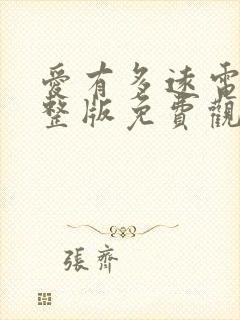 愛有多速電
整版免費觀
張齊